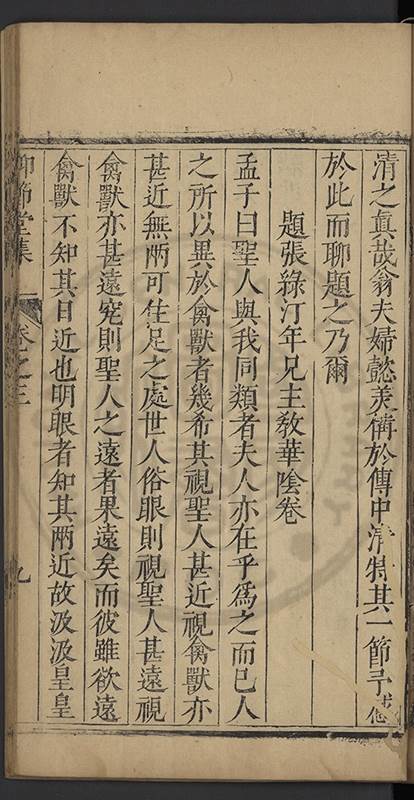 清之眞哉翁夫婦懿美備於傳中清特其一節予感
於此而聊題之乃爾
題張綠汀年兄主敎華陰卷
孟子曰聖人與我同類者夫人亦在乎爲之而已人
之所以異於禽獸者幾希其視聖人甚近視禽獸亦
甚近無兩可住足之處世人俗眼則視聖人甚遠視
禽獸亦甚遠究則聖人之遠者果遠矣而彼雖欲遠
禽獸不知其日近也明眼者知其兩近故汲汲皇皇
仰節堂集 卷之三 九